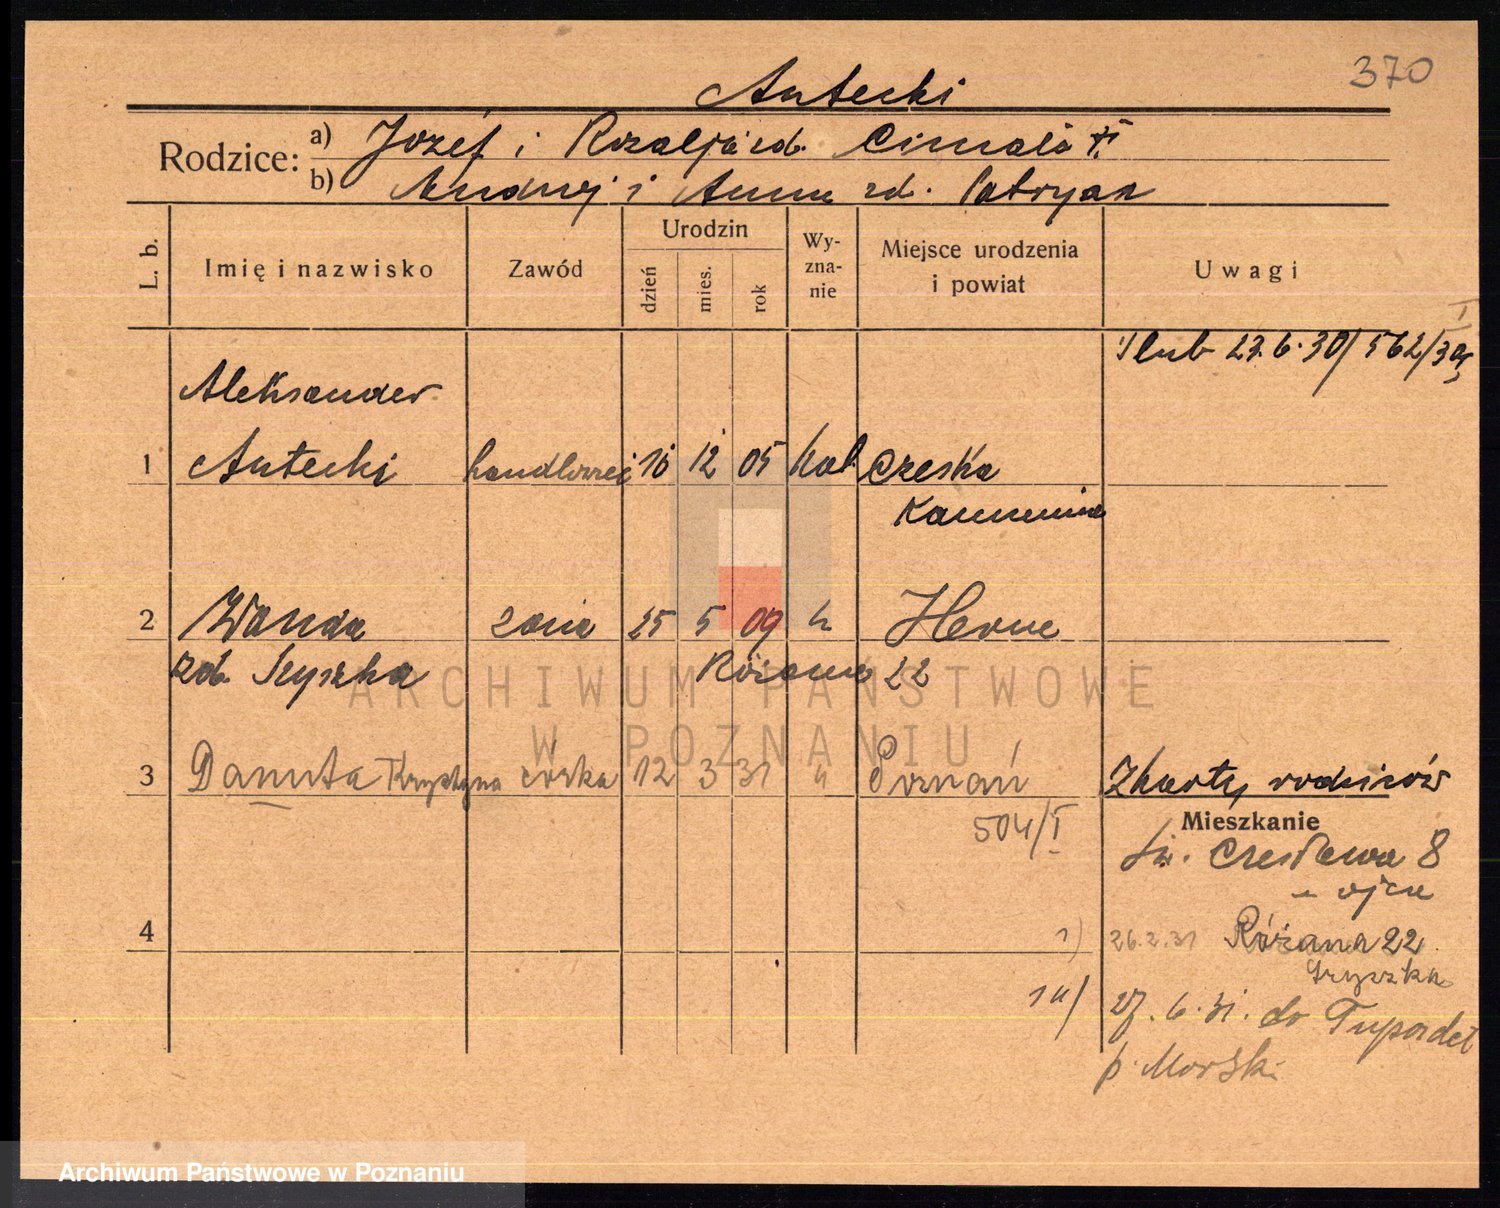 370
Antecki
Rodzice:
a) Józef i Rozalja zd.
b) Andrzej i Anna zd. Patryas
L. b.
Imię i nazwisko
Zawód
Urodzin
dzień
mies.
rok
Wy-
zna-
nie
Miejsce urodzenia
i powiat
Uwagi
I
ślub 23.6.30/562/30
Aleksander
1 Antecki handlowiec 16 12 05 kat. Czeska
Kamienica
2 Wanda żona 25 5 09 " Herne
zd. Szyszka Różana 22
3 Danuta Krystyna córka 12 3 31 " Poznań
504/I
Z karty rodziców
Mieszkanie
św. Czesława 8
u ojca
4
1) 26.2.31 Różana 22
Szyszka
1u) 27.6.31. do
p. Morski
ARCHIWUM PAŃSTWOWE
W POZNANIU
Archiwum Państwowe w Poznaniu